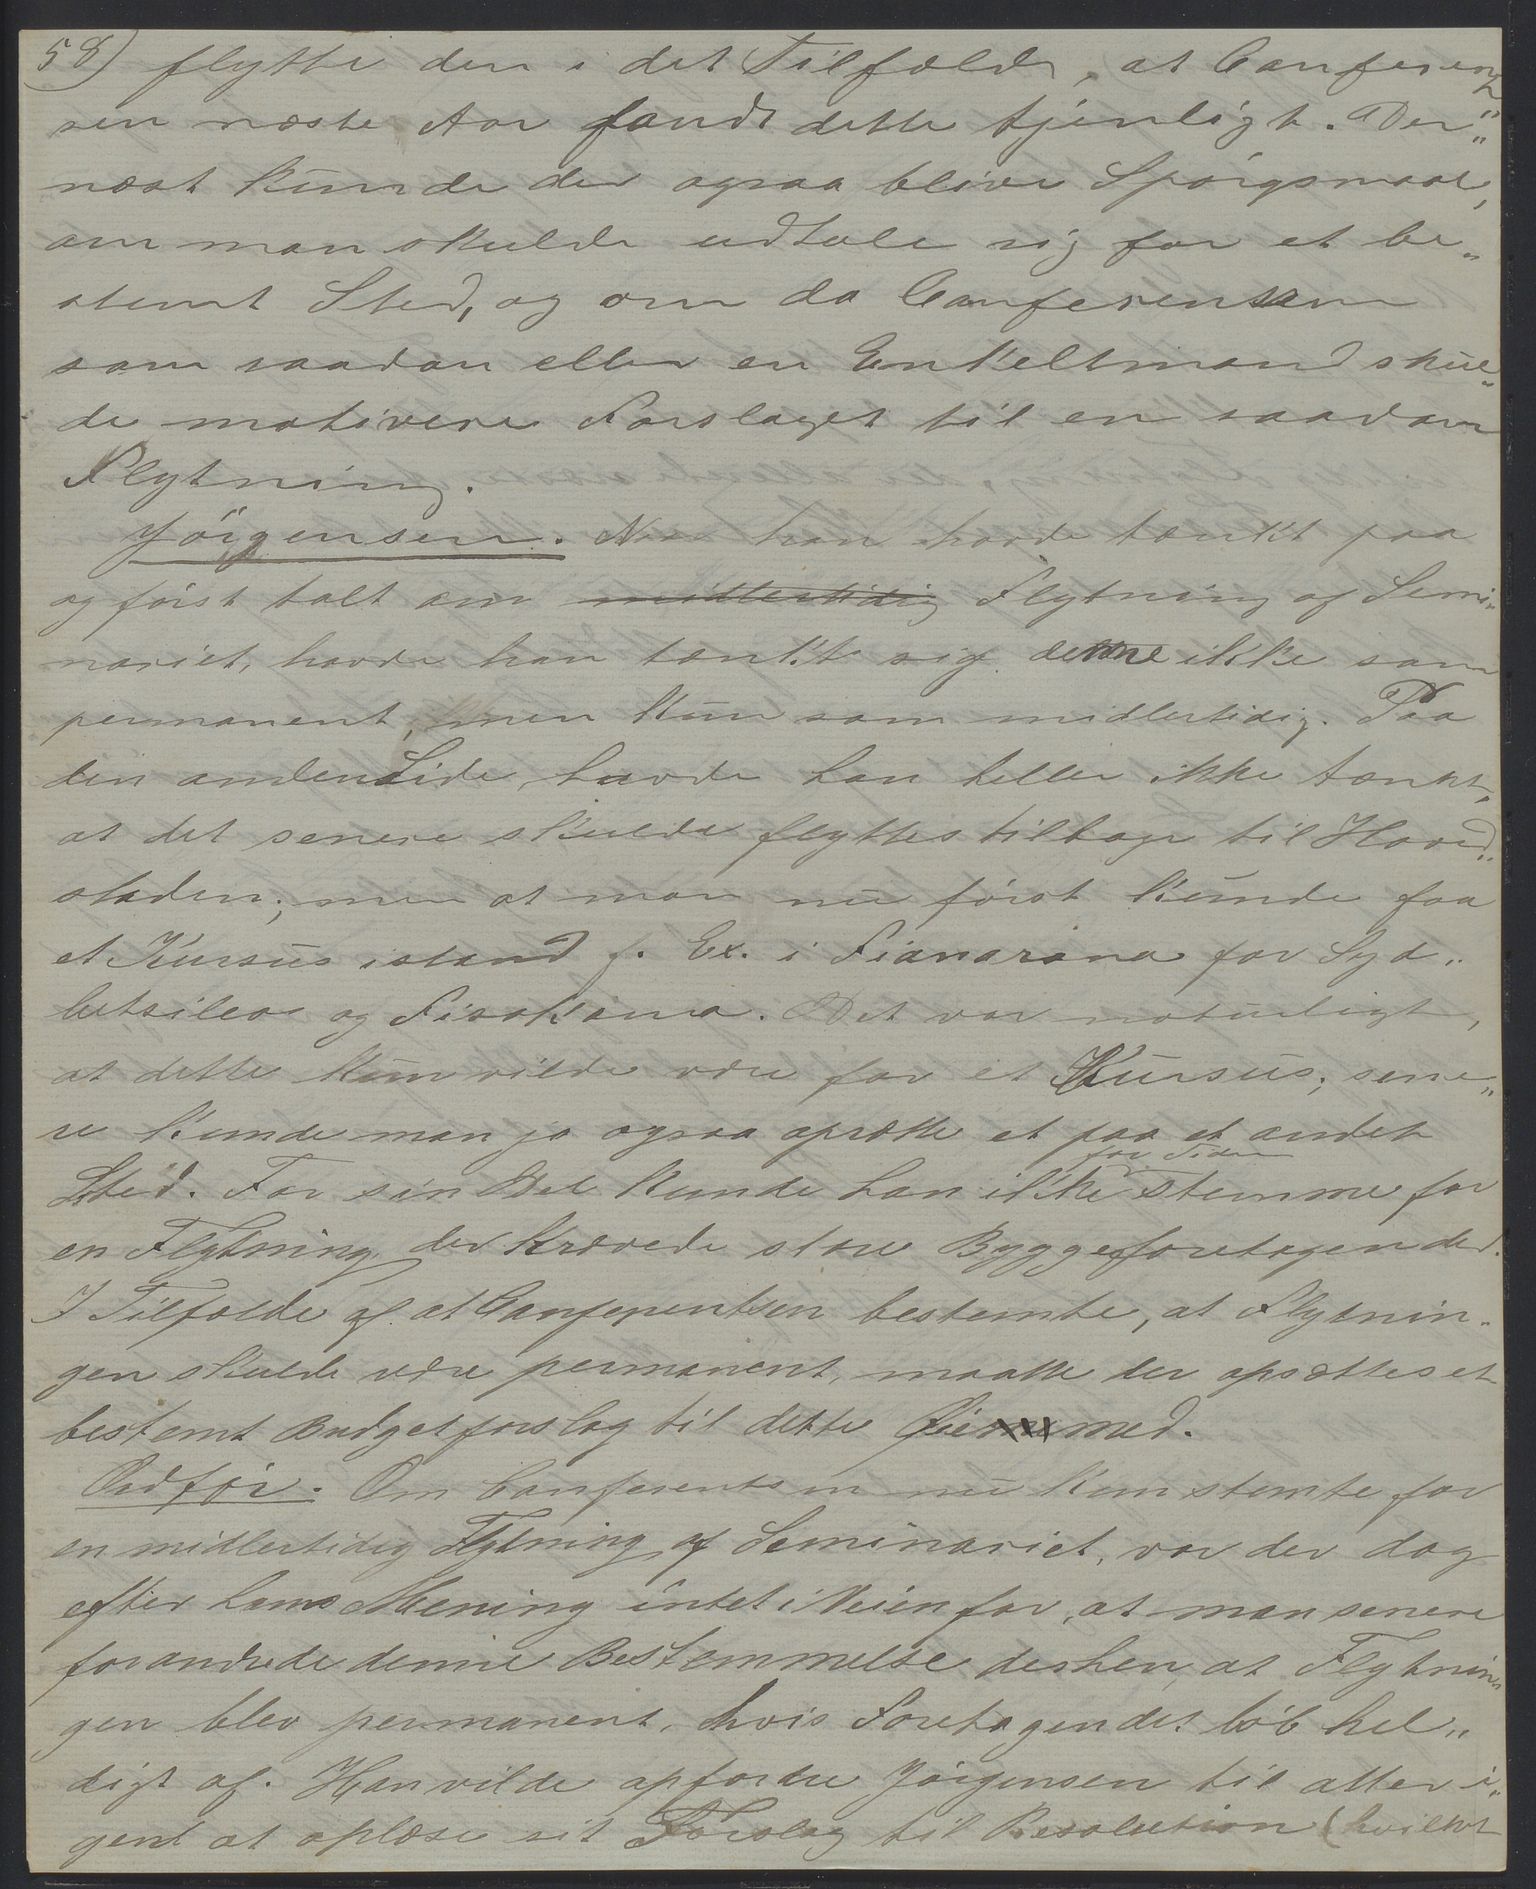 58) flytte den i det Tilfælde, at Conferent„
sen næste Aar fandt dette tjenligt. Der„
næst kunde der ogsaa blive Spørgsmaal,
om man skulde udtale sig for et be„
stemt Sted, og om da Conferentsen
som saadan eller en Enkeltmand skul„
de motivere Forslaget til en saadan
Flytning.
Jörgensen. Naar han havde tænkt paa
og først talt om midlertidig Flytning af Semi„
nariet, havde han tænkt sig denne ikke som
permanent, men kun som midlertidig. Paa
den anden Side havde han heller ikke tænkt,
at det senere skulde flyttes tilbage til Hoved„
staden; men at man nu først kunde faa
et Kursus istand f. Ex. i Fianarana for Syd„
betsileo og Fisakana. Det var naturligt,
at dette kun vilde være for et Kursus; sene„
re kunde man jo ogsaa oprette et paa et andet
Sted. For sin Del kunde han ikke for Tiden stemme for
en Flytning der krævede store Byggeforetagender.
I Tilfælde af at Conferentsen bestemte, at Flytnin„
gen skulde være permanent, maatte der opsættes et
bestemt Budgetforslag til dette Øiemed.
Ordfør. Om Conferentsen nu kun stemte for
en midlertidig Flytning af Seminariet, var der dog
efter hans Mening intet i Veien for, at man senere
forandrede denne Bestemmelse derhen, at Flytnin„
gen blev permanent, hvis Foretagendet løb hel„
digt af. Han vilde opfordre Jörgensen til atter i„
gent at oplæse sit Forslag til Resolution (hvilket